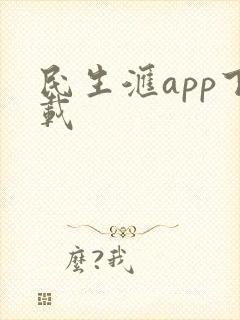 民生滙app下
載
麼?我